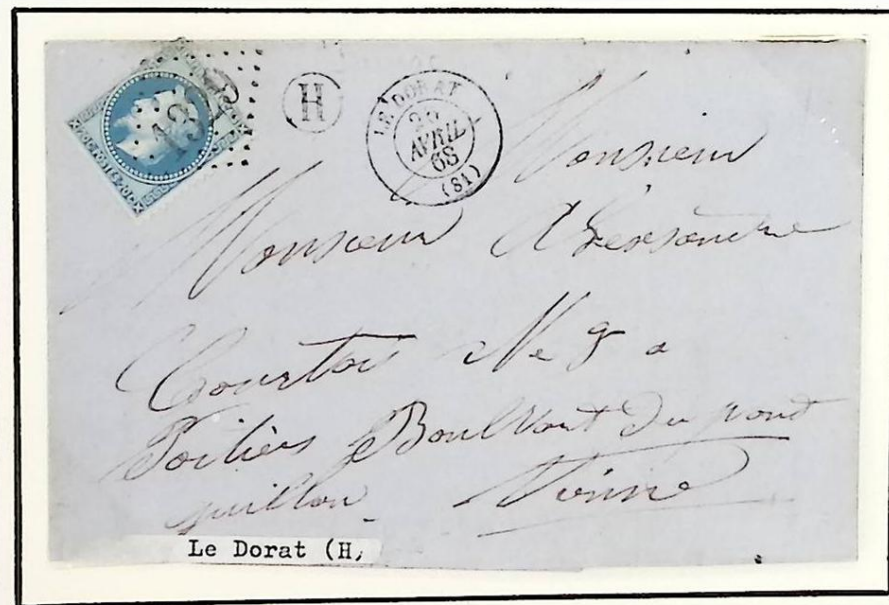 H
LE DORAT
AVRIL
68
(81)
Monsieur
Monsieur Alexsandre
Courtois Ne 9 a
Poitiers Boulvart du pond
guillon Vienne
Le Dorat (H,